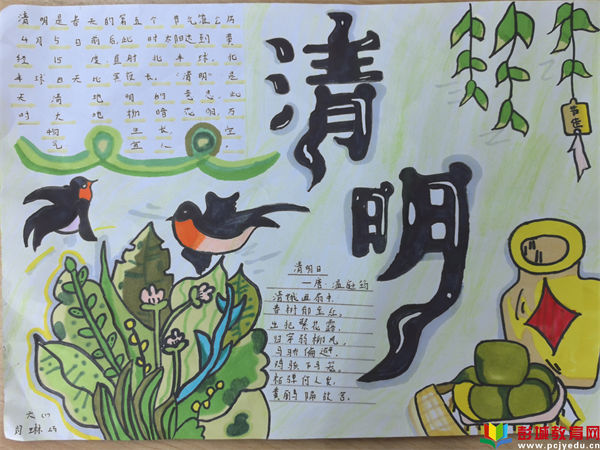 清明是春天的第五个节气公历
4月5日前后,此时太阳达到黄
经15度,直射北半球,北
半球白天比黑夜长。"清明"是
天清地明的意思,此
时大地柳暗花明,万
物生长,空
气宜人。
清明
清明日
—唐.温庭筠
清娥画扇中,
春树郁金红。
出犯繁花露,
归穿弱柳风。
马骄偏避,
鸡骇乍开笼。
柘弹何人发,
黄鹂隔故宫。
彭城教育网
www.pcjyedu.cn